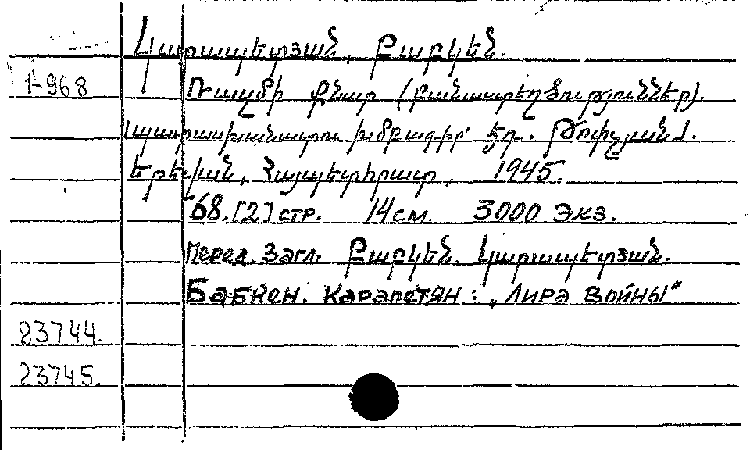 Կարապետյան, Բաբկեն.
1-968 Ռազմի քնար (բանաստեղծություններ).
Պատասխանատու խմբագիր՝ Էդ. Թոփչյան.
Երեվան, Հայպետհրատ, 1945.
68.[2] стр. 14 см. 3000 экз.
Перед. загл. Բաբկեն. Կարապետյան.
Бабкен. Карапетян: „Лира войны"
23744.
23745.